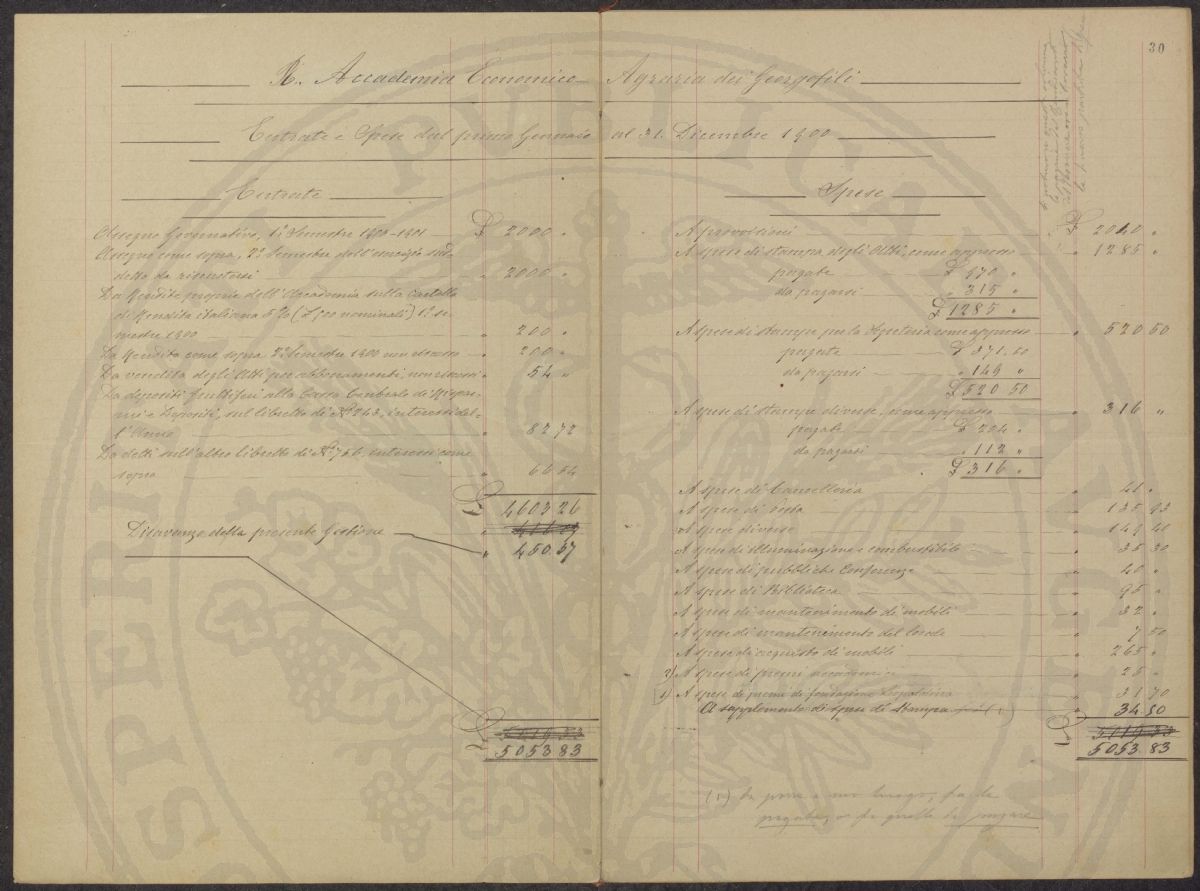 30
R. Accademia Economico Agraria dei Georgofili
Entrate e Spese dal primo Gennaio al 31. Dicembre 1900
Entrate
Assegno Governativo, 1° Semestre 1900-1901 £ 2000 "
Assegno come sopra, 2° Semestre dell'esercizio sud=
detto da riscuotersi " 2000 "
Da Rendite proprie dell'Accademia sulla Cartella
di Rendita italiana 5% nominali) 1° se=
mestre 1900 " 200 "
Da Rendita come sopra 2° Semestre 1900 " 200 "
Da vendita degli Atti per abbonamenti, " 54 "
Da depositi fruttiferi alla Cassa Centrale di Rispar=
mi e Depositi, sul libretto di N° 243, interessi del=
l'Anno " 82 72
Da detti sull'altro libretto di N° 756, interessi come
sopra " 66 54
£ 4603 26
Disavanzo della presente Gestione " 450.57
£ 5053 83
Spese
A provvisioni £ 2040 "
A spese di stampa degli Atti, come appresso " 1285 "
pagate £ 970 "
da pagarsi " 315 "
£ 1285 "
A spese di stampe per la Segreteria come appresso " 520 50
pagate £ 371.50
da pagarsi " 149 "
£ 520 50
A spese di stampe diverse, come appresso " 316 "
pagate £ 204 "
da pagarsi " 112 "
£ 316 "
A spese di Cancelleria " 41 "
A spese di Posta " 135 93
A spese diverse " 149 40
A spese di illuminazione e combustibile " 35 30
A spese di pubbliche Conferenze " 40 "
A spese di Biblioteca " 95 "
A spese di mantenimento di mobili " 32 "
A spese di mantenimento del locale " 7 50
A spese di acquisto di mobili " 265 "
2) A spese di premi accademici " 25 "
1) A spese di premi di fondazione Leopoldina " 31 70
A supplemento di spese di Stampa " 34 50
£ 5053.83
(1) da porre a suo luogo, fra le
pagate, e fra quelle da pagare
PVBLICAE
SPEI
AVGENDAE